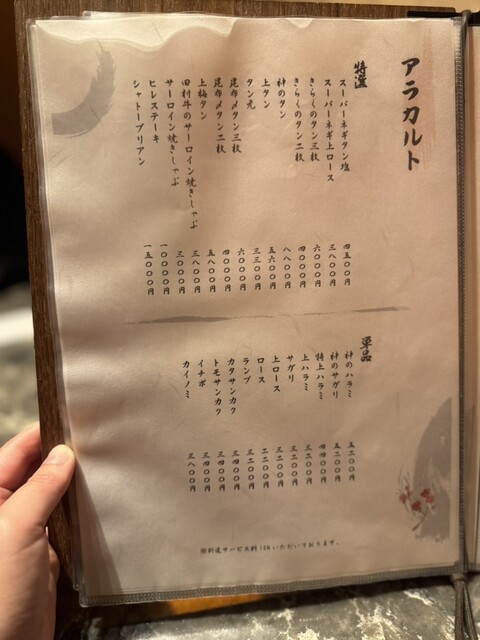 アラカルト
特選
スーパーネギタン塩 四五〇〇円
スーパーネギ上ロース 三八〇〇円
きらくのタン三枚 六〇〇〇円
きらくのタン二枚 四〇〇〇円
神のタン 八八〇〇円
上タン 五六〇〇円
タン元 三三〇〇円
昆布〆タン三枚 六〇〇〇円
昆布〆タン二枚 四〇〇〇円
上梅タン 五八〇〇円
田村牛のサーロイン焼きしゃぶ 三八〇〇円
サーロイン焼きしゃぶ 三〇〇〇円
ヒレステーキ 一〇〇〇〇円
シャトーブリアン 一五〇〇〇円
単品
神のハラミ 五二〇〇円
神のサガリ 五二〇〇円
特上ハラミ 四四〇〇円
上ハラミ 三二〇〇円
サガリ 三二〇〇円
上ロース 三二〇〇円
ロース 二二〇〇円
ランプ 三二〇〇円
カタサンカク 三四〇〇円
トモサンカク 三四〇〇円
イチボ 三四〇〇円
カイノミ 三八〇〇円
※別途サービス料10%いただいております。